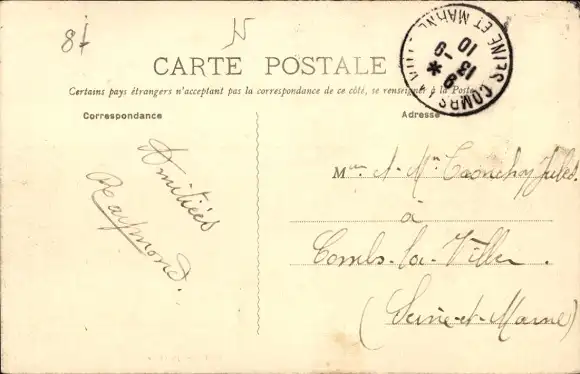 87
N
CARTE POSTALE
Certains pays étrangers n'acceptant pas la correspondance de ce côté, se renseigner à la Poste
Correspondance
Adresse
Amitiées
Raymond.
Jules.
à
Combs-la-Ville.
(Seine-et-Marne)
COMBS
SEINE ET MARNE
13 - 9
10